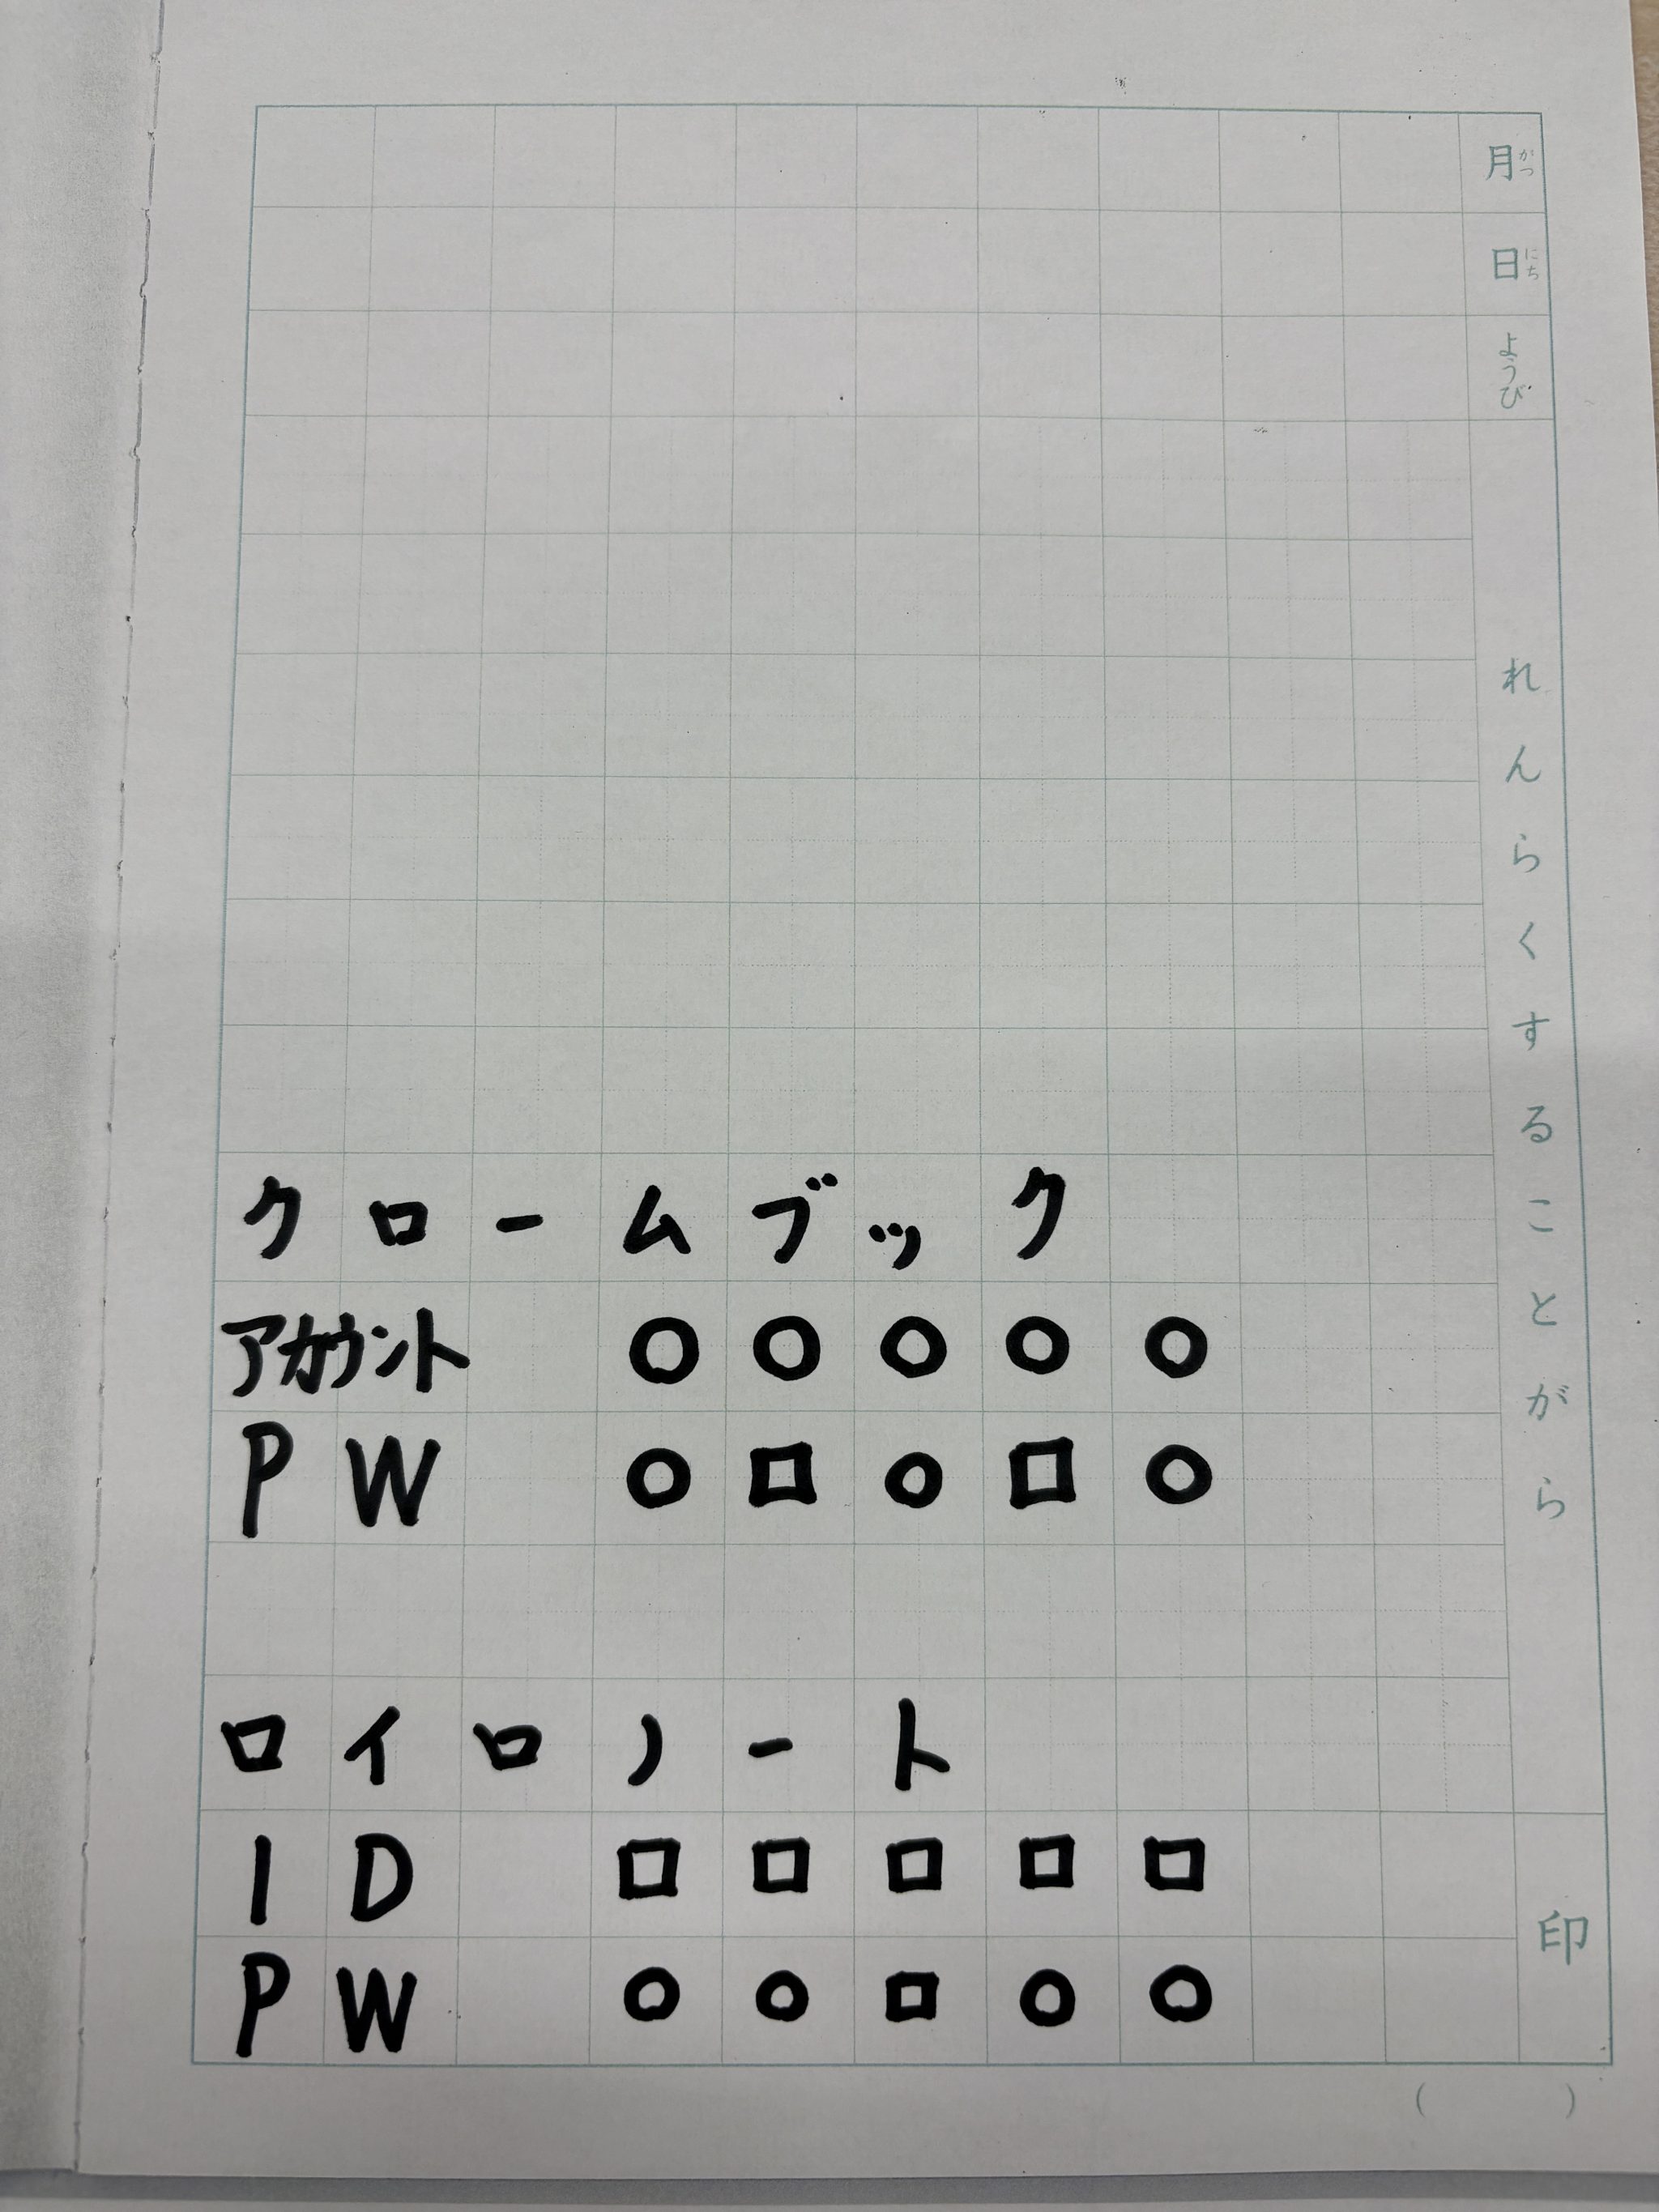 月 がつ
日 にち
ようび
れんらくすることがら
クロームブック
アカウント ○○○○○
PW ○□○□○
ロイロノート
ID □□□□□
PW ○○□○○
印
( )